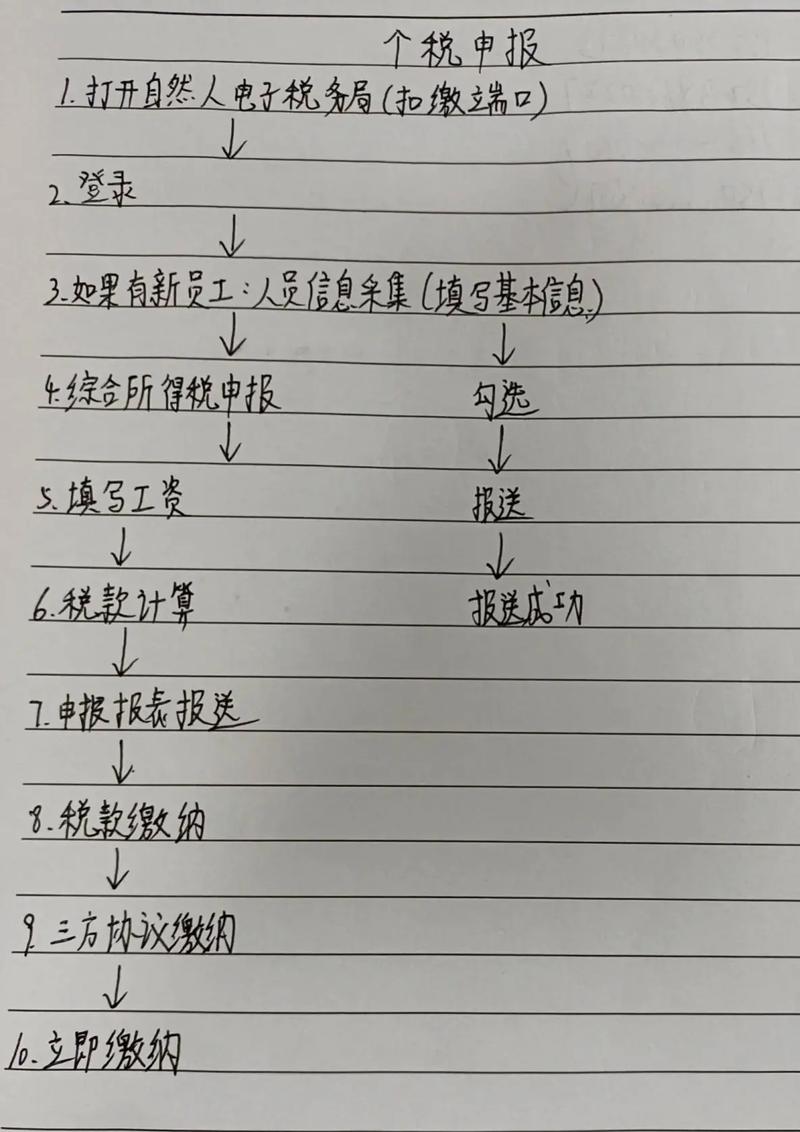 个税申报
1.打开自然人电子税务局(扣缴端口)
↓
2.登录
↓
3.如果有新员工:人员信息采集(填写基本信息)
↓ ↓
4.综合所得税申报 勾选
↓ ↓
5.填写工资 报送
↓ ↓
6.税款计算 报送成功
↓
7.申报报表报送
↓
8.税款缴纳
↓
9.三方协议缴纳
↓
10.立即缴纳